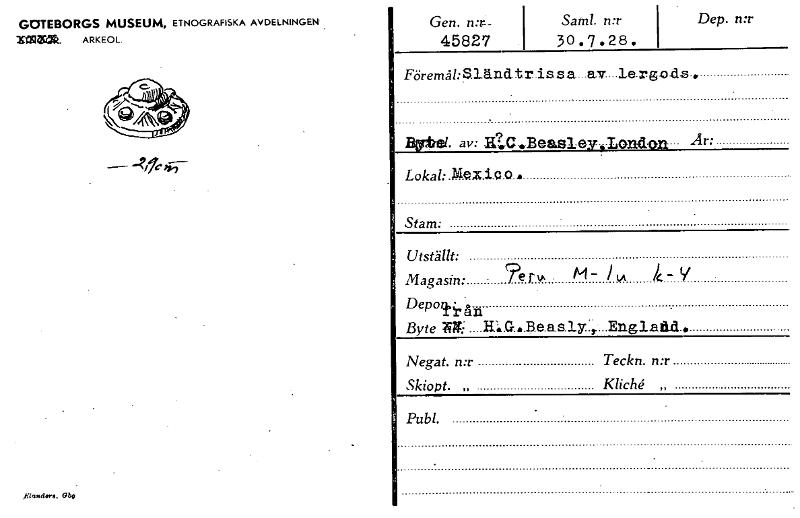 GÖTEBORGS MUSEUM, ETNOGRAFISKA AVDELNINGEN
ARKEOL.
— 2,9 cm
Elanders, Gbg
Gen. n:r Saml. n:r Dep. n:r
45827 30.7.28.
Föremål: Sländtrissa av lergods.
Byte av: H.C.Beasley, London År:
?
Lokal: Mexico.
Stam:
Utställt:
Magasin: Peru M-1u k-4
Depon.:
från
Byte H.G.Beasly, England.
Negat. n:r Teckn. n:r
Skiopt. „ Kliché „
Publ.